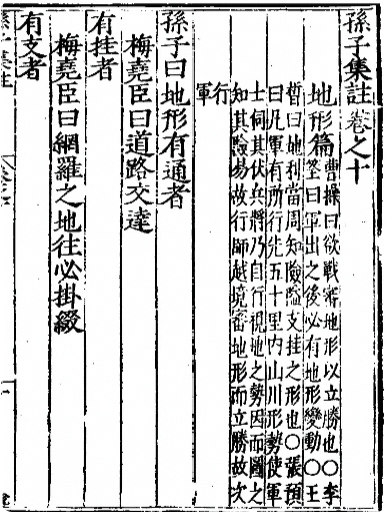 孫子集註卷之十
地形篇
曹操曰欲戰審地形以立勝也○李
筌曰軍出之後必有地形變動○王
晳曰地利當周知險隘支挂之形也○張預
曰凡軍有所行先五十里內山川形勢使軍
士伺其伏兵將乃自行視地之勢因而圖之
知其險易故行師越境審地形而立勝故次
行
軍
孫子曰地形有通者
梅堯臣曰道路交達
有挂者
梅堯臣曰網羅之地往必掛綴
有支者